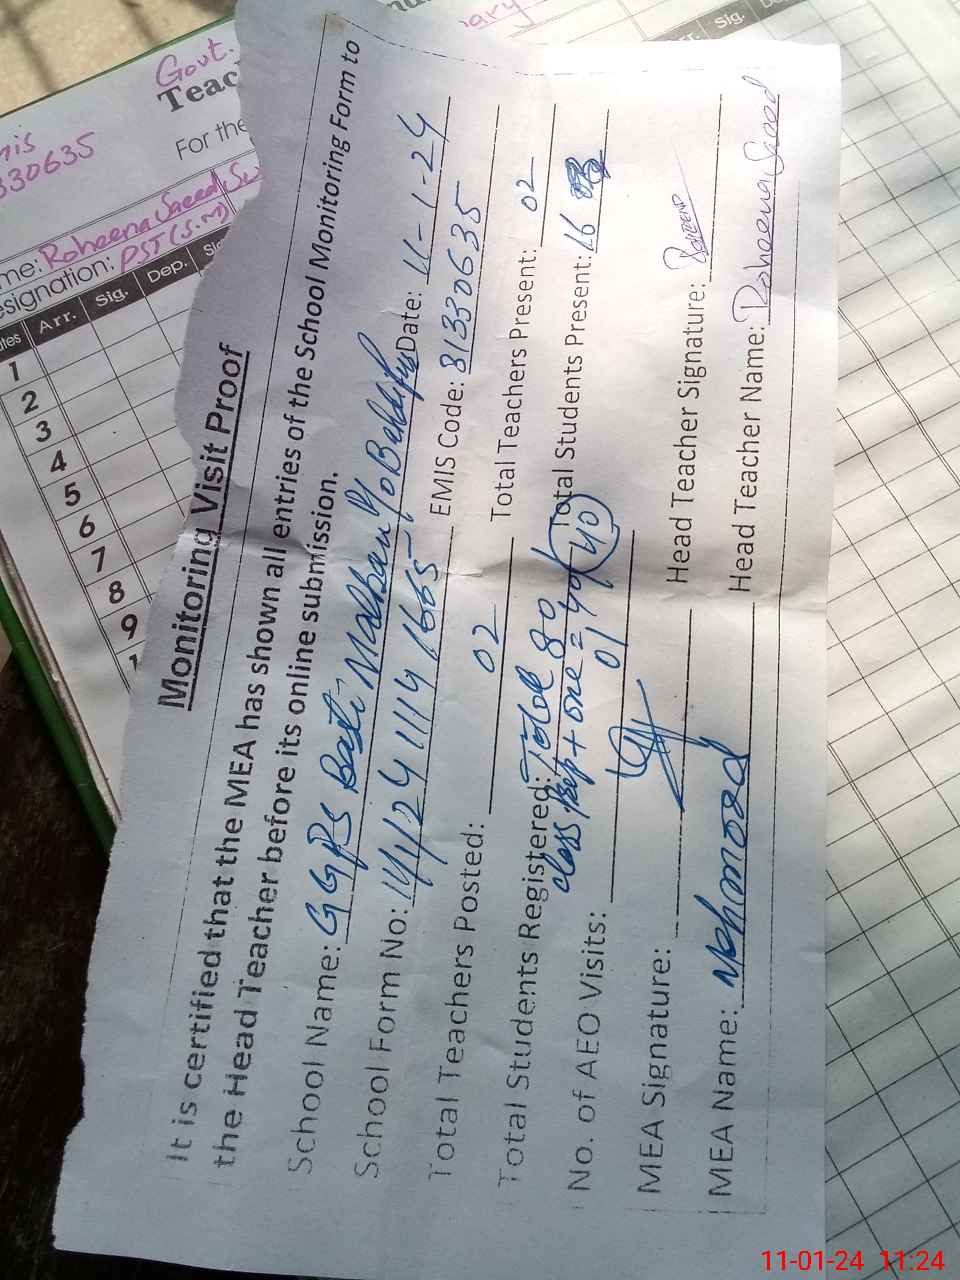 Govt.
Teac
For the
330635
me: Roheena Saeed
esignation: PST (S.M)
Arr. Sig. Dep.
1
2
3
4
5
6
7
8
9
Sig.
Monitoring Visit Proof
It is certified that the MEA has shown all entries of the School Monitoring Form to
the Head Teacher before its online submission.
School Name: GGPS Basti Date: 11-1-24
School Form No: EMIS Code: 31330635
Total Teachers Posted: 02 Total Teachers Present: 02
Total Students Registered: Total 80 Total Students Present: 16
class prep + one = 40 (40)
No. of AEO Visits: 01
MEA Signature: Head Teacher Signature:
MEA Name: Mehmood Head Teacher Name: Roheena Saeed
11-01-24 11:24